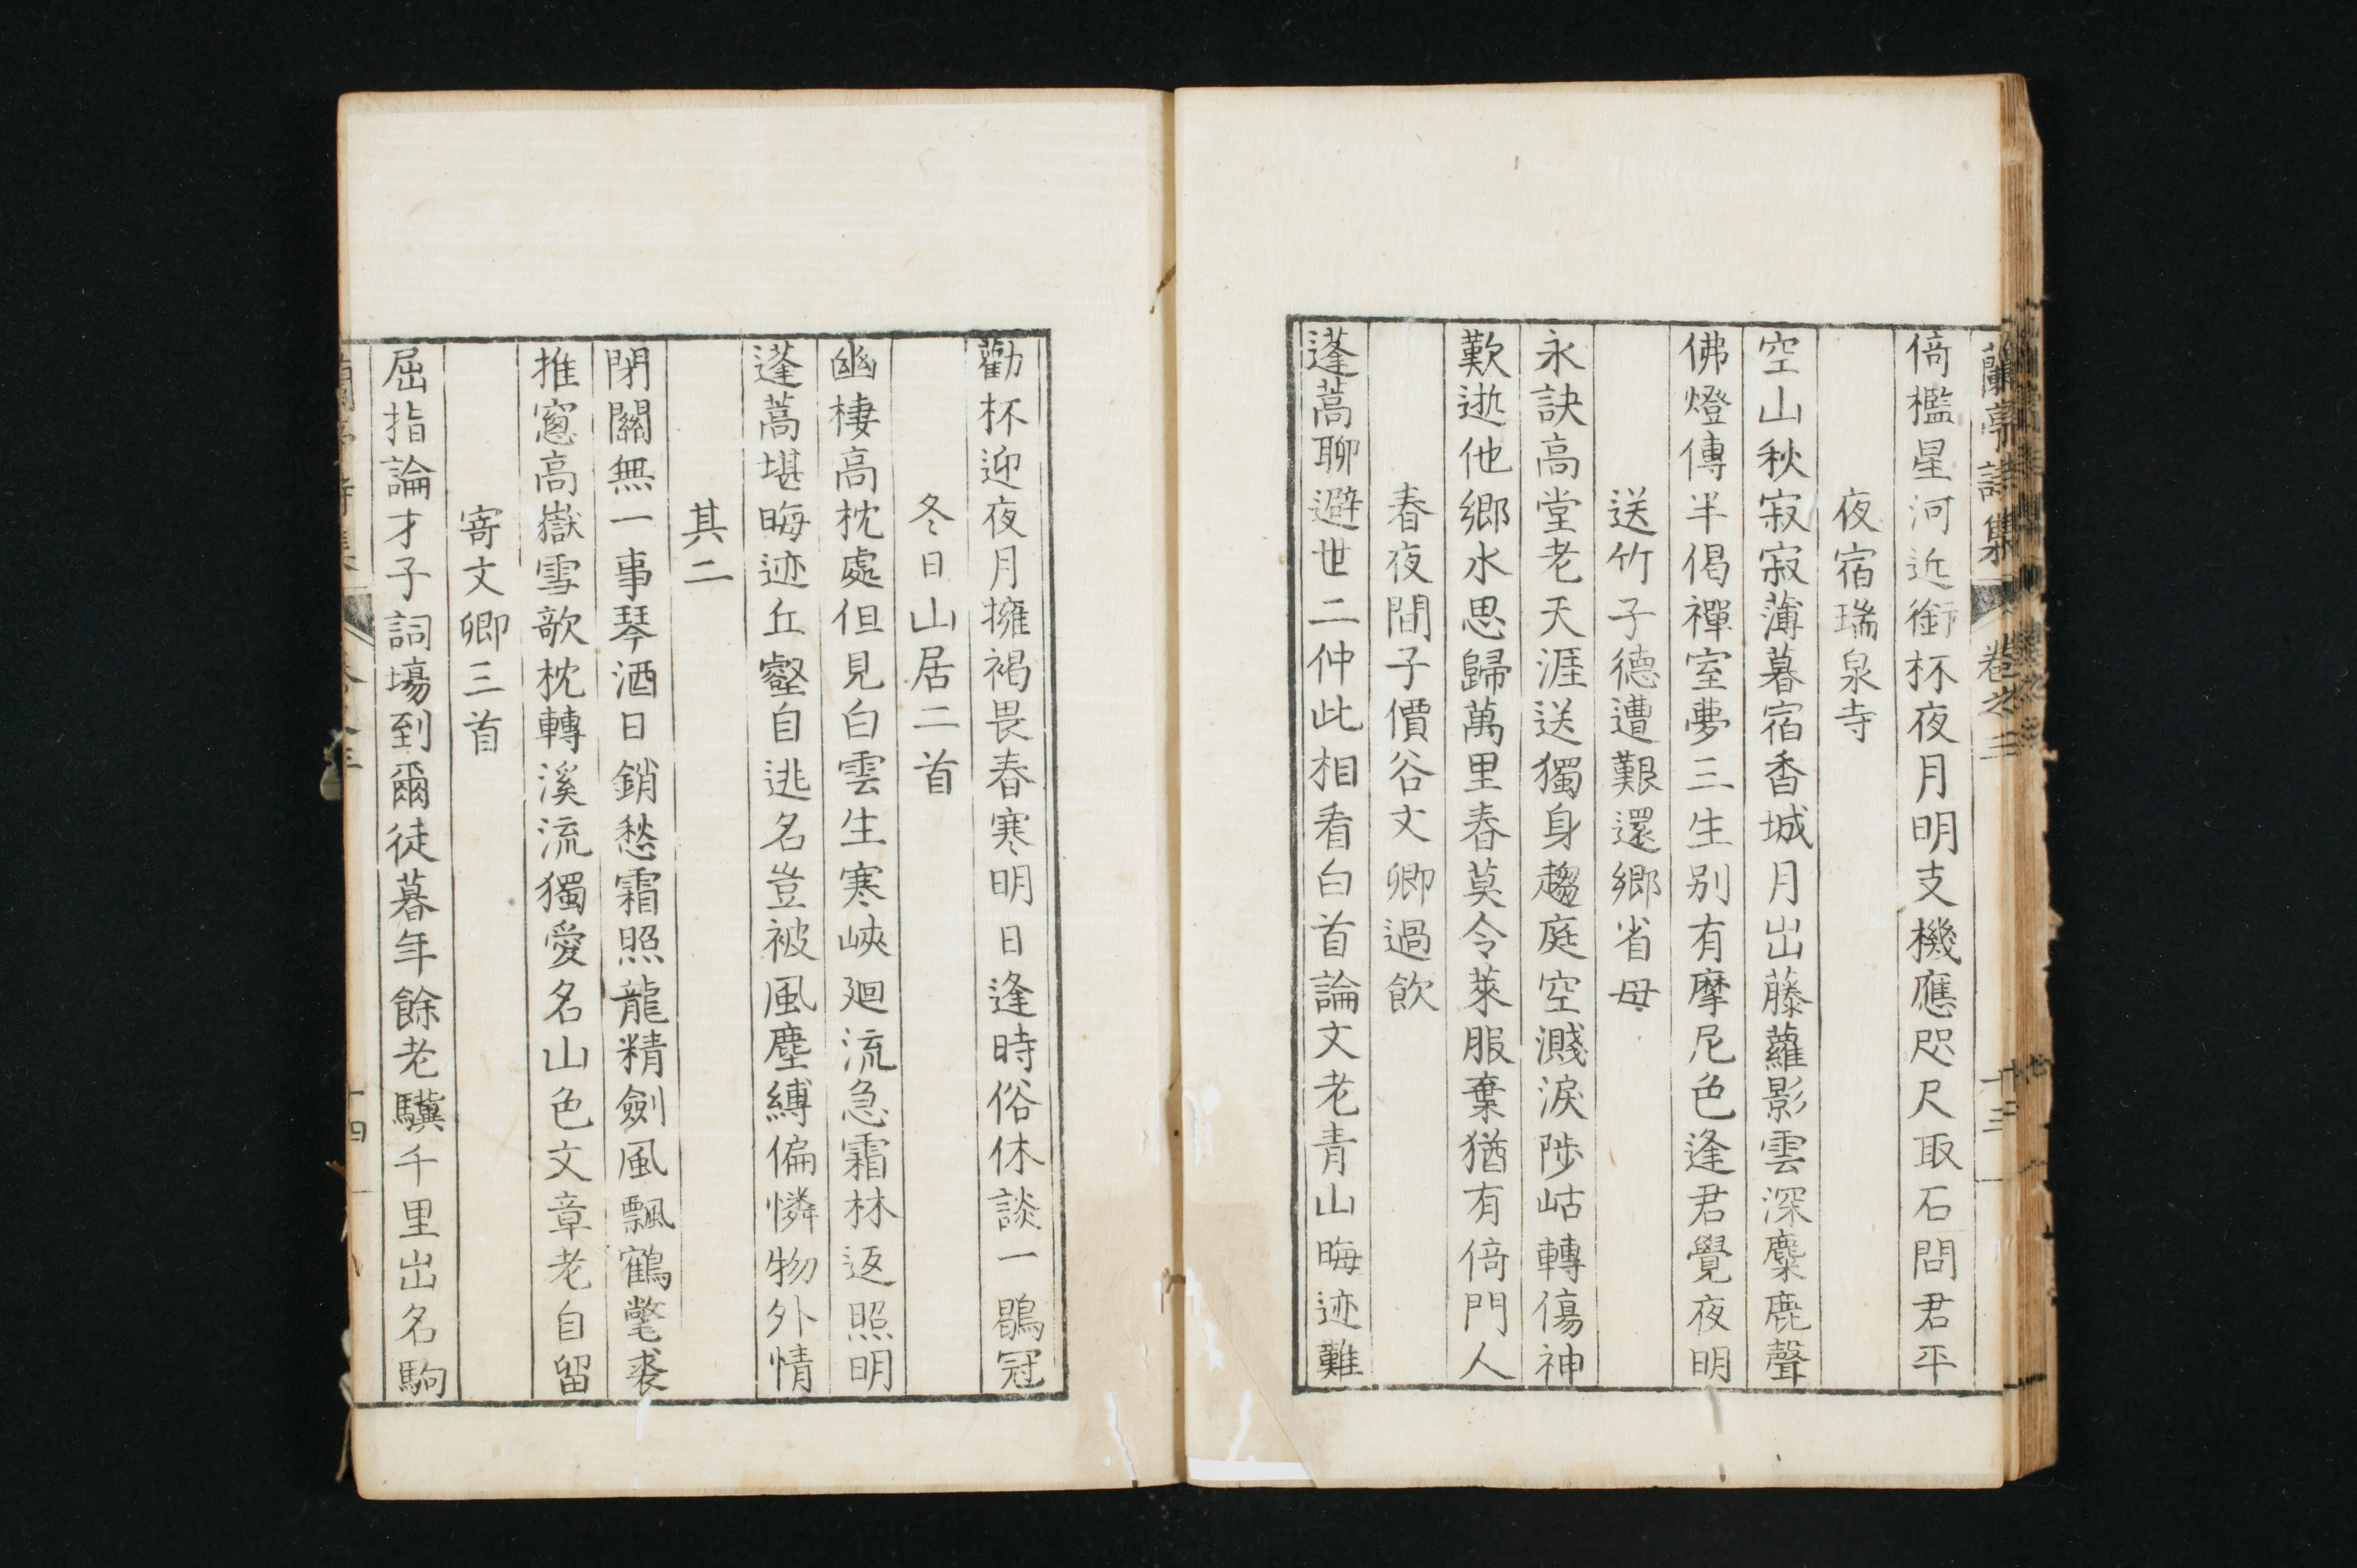 蘭亭詩集 卷之三 十三
倚檻星河近銜杯夜月明支機應咫尺取石問君平
夜宿瑞泉寺
空山秋寂寂薄暮宿香城月出藤蘿影雲深麋鹿聲
佛燈傳半偈禪室夢三生別有摩尼色逢君覺夜明
送竹子德遭艱還鄉省母
永訣高堂老天涯送獨身趨庭空濺淚陟岵轉傷神
歎逝他鄉水思歸萬里春莫令萊服棄猶有倚門人
春夜間子價谷文卿過飲
蓬蒿聊避世二仲此相看白首論文老青山晦迹難
勸杯迎夜月擁褐畏春寒明日逢時俗休談一鶡冠
冬日山居二首
幽棲高枕處但見白雲生寒峽廻流急霜林返照明
蓬蒿堪晦迹丘壑自逃名豈被風塵縛偏憐物外情
其二
閉關無一事琴酒日銷愁霜照龍精劍風飄鶴氅裘
推窓高嶽雪欹枕轉溪流獨愛名山色文章老自留
寄文卿三首
屈指論才子詞場到爾徒暮年餘老驥千里出名駒